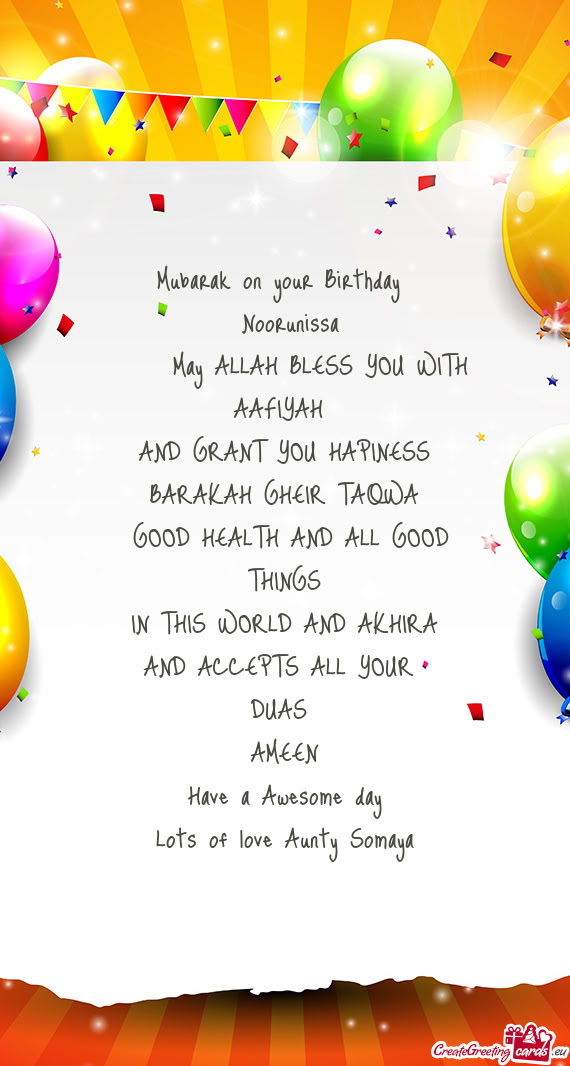 Mubarak on your Birthday
Noorunissa
May ALLAH BLESS YOU WITH
AAFIYAH
AND GRANT YOU HAPINESS
BARAKAH GHEIR TAQWA
GOOD HEALTH AND ALL GOOD
THINGS
IN THIS WORLD AND AKHIRA
AND ACCEPTS ALL YOUR
DUAS
AMEEN
Have a Awesome day
Lots of love Aunty Somaya
CreateGreeting cards .eu